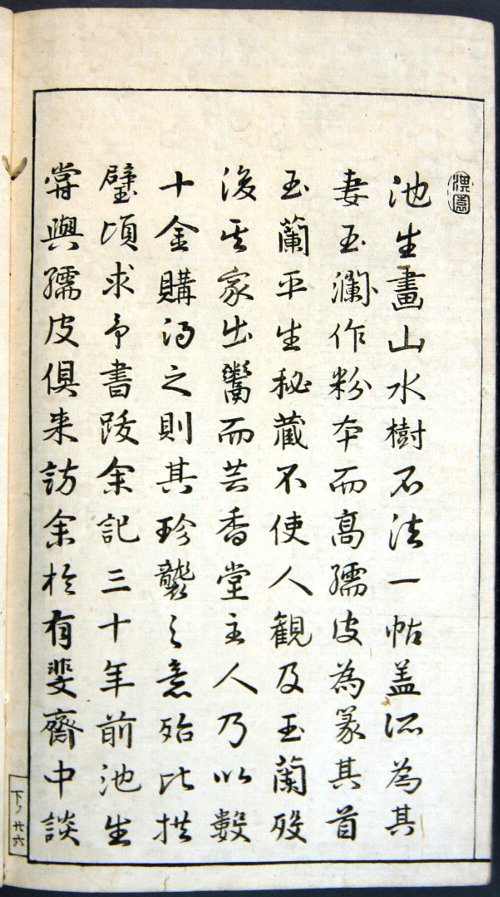 淇園
池生畫山水樹石法一帖盖所為其
妻玉瀾作粉本而高孺皮為篆其首
玉蘭平生秘蔵不使人観及玉蘭歿
後其家出鬻而芸香堂主人乃以數
十金購得之則其珍襲之意殆比拱
璧頃求予書跋余記三十年前池生
嘗與孺皮俱来訪余於有斐齋中談
下ノ廿六